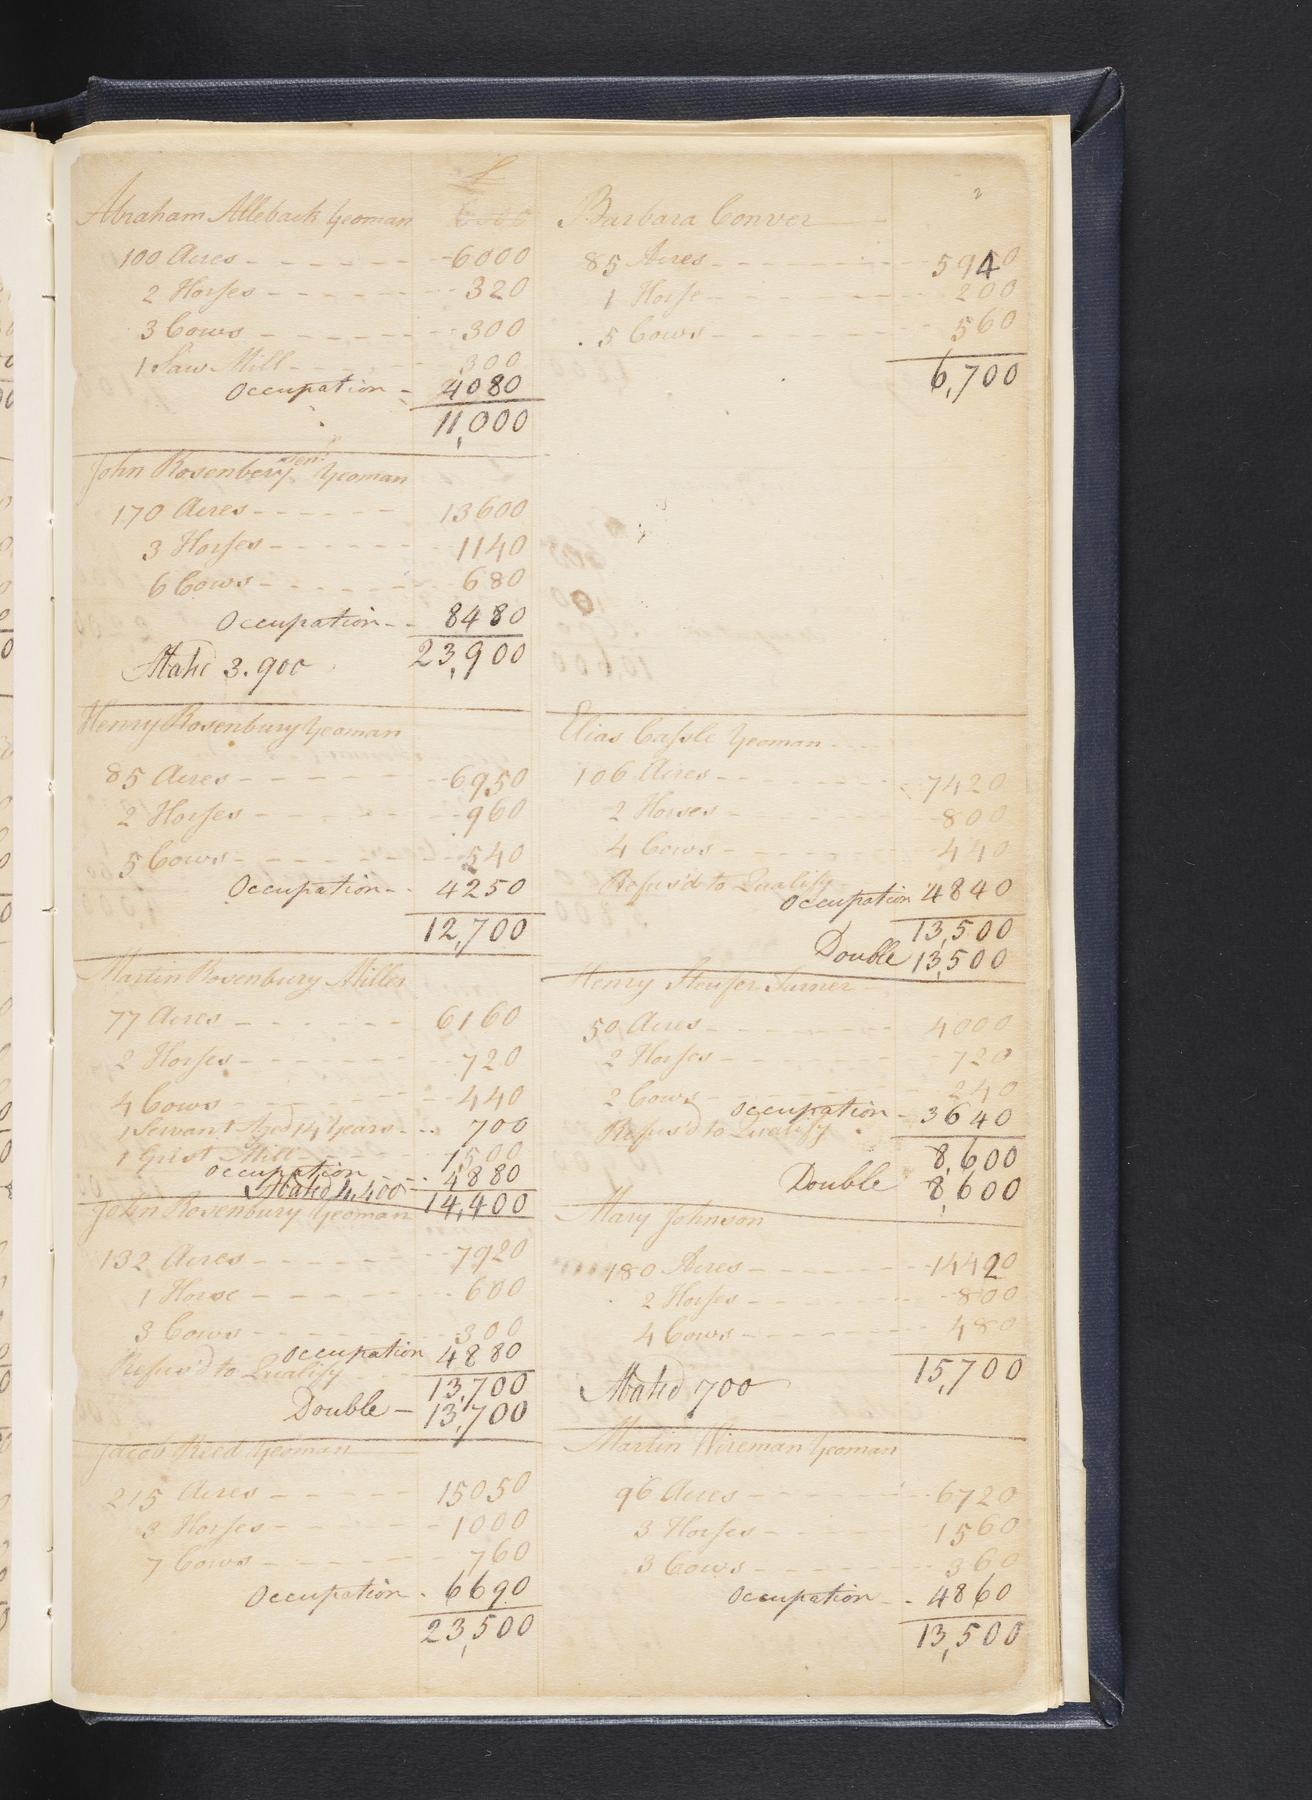 £
Abraham Alleback Yeoman
100 Acres - - - - - - 6000
2 Horses - - - - - - 320
3 Cows - - - - - - 300
1 Saw Mill - - - - 300
Occupation - 4080
11,000
John Rosenbery Senr. Yeoman
170 Acres - - - - - 13600
3 Horses - - - - - 1140
6 Cows - - - - - - 680
Occupation - - 8480
23,900
Abated 3.900
Henry Rosenbury Yeoman
85 Acres - - - - - - 6950
2 Horses - - - - - - 960
5 Cows - - - - - - 540
Occupation - - 4250
12,700
Martin Rosenbury Miller
77 Acres - - - - - - 6160
2 Horses - - - - - - 720
4 Cows - - - - - - 440
1 Servant Aged 14 Years - - 700
1 Grist Mill - - - - 1,500
Occupation - 4880
Abated 4,400 14,400
John Rosenbury Yeoman
132 Acres - - - - - - 7920
1 Horse - - - - - - 600
3 Cows - - - - - - 300
Occupation 4880
Refus'd to Qualify - - - 13,700
Double - 13,700
Jacob Reed Yeoman
215 Acres - - - - - 15050
3 Horses - - - - - - 1000
7 Cows - - - - - - 760
Occupation - 6690
23,500
2
Barbara Conver
85 Acres - - - - - - 5940
1 Horse - - - - - - 200
5 Cows - - - - - - 560
6,700
Elias Cassle Yeoman - - -
106 Acres - - - - - - 7420
2 Horses - - - - - - 800
4 Cows - - - - - - 440
Refus'd to Qualify
Occupation 4840
13,500
Double 13,500
Henry Stoufer Turner
50 Acres - - - - - - 4000
2 Horses - - - - - - 720
2 Cows - - - - - - 240
Occupation - 3640
Refus'd to Qualify
8,600
Double 8,600
Mary Johnson
180 Acres - - - - - 14420
2 Horses - - - - - - 800
4 Cows - - - - - - 480
15,700
Abated 700
Martin Wireman Yeoman
96 Acres - - - - - - 6720
3 Horses - - - - - 1560
3 Cows - - - - - - 360
Occupation - - 4860
13,500